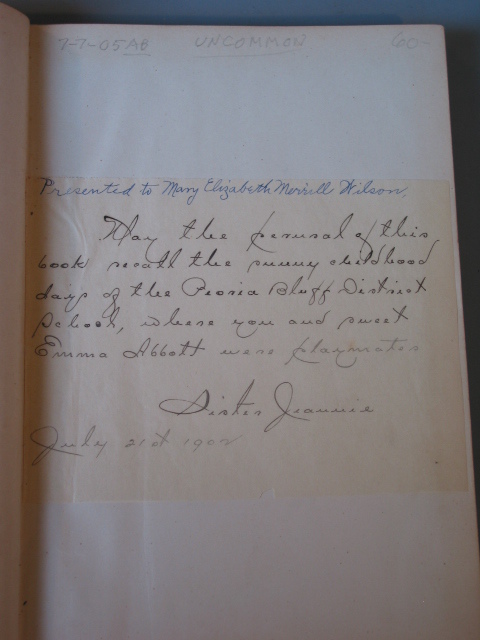 7-7-05AB UNCOMMON 60-
Presented to Mary Elizabeth Merrell Wilson,
May the perusal of this
book recall the sunny childhood
days of the Peoria Bluff District
School, where you and sweet
Emma Abbott were playmates
Sister Jeannie
July 21st 1902